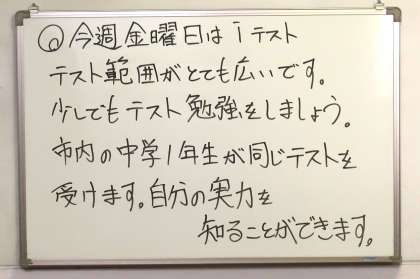 ◎今週金曜日はiテスト
テスト範囲がとても広いです。
少しでもテスト勉強をしましょう。
市内の中学1年生が同じテストを
受けます。自分の実力を
知ることができます。